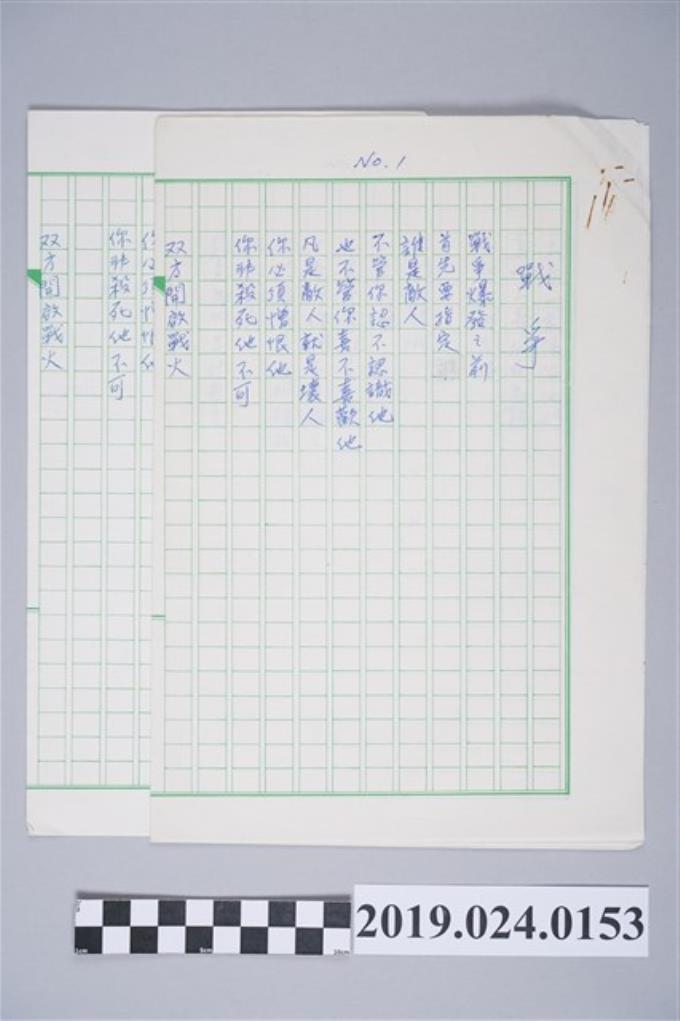 No. 1
戰爭
戰爭爆發之前
首先要指定
誰是敵人
不管你認不認識他
也不管你喜不喜歡他
凡是敵人就是壞人
你必須憎恨他
你非殺死他不可
双方開啟戰火
你必須憎恨他
你非殺死他不可
双方開啟戰火
1cm
5cm
10cm
2019.024.0153